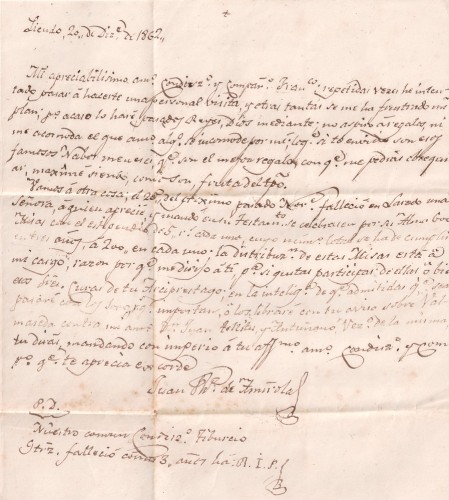 Liendo, 20, de Diz.e de 1862,,
Mi apreciabilisimo am.o Condis.o y Compañ.o Fran.co repetidas veces he inten-
tado pasar á hacerte una personal visita, y otras tantas se me ha frustrado mi
plan; p.o acaso lo haré pasados Reyes, Dios mediante; no aspiro a regalos, ni
me acomoda el que am.o alg.o se incomode por mi; lo q.e si te envidio son esos
famosos Nabos q.e son el mejor regalo con q.e me podias obsequi
ar, maxime siendo, como son, fruta del tpo.
Vamos á otra cosa; el 28, del proximo pasado Nov.e falleció en Laredo una
Señora, á quien aprecié, y mando en su Testam.to se celebrasen por su Alma
Misas con el estipendio de 5, r.s cada una, cuyo se ha de cumplir
en tres años, á 200, en cada uno: la distribuc.n de estas Misas está á
mi cargo, razon por q.e me dirijo á ti p.a si gustas participar de ellas, ó bien
esos Sres. Curas de tu Arciprestazgo, en la intelig.a de q.e admitidas q.e sean
pagaré con los q.e importan, ó los librare con tu aviso sobre Val-
maseda contra mi am.o D.n Juan y Antuñano, Vez.o de la misma
tu dirás, mandando con imperio á tu aff.mo am.o Condis.o y Com
p.o q.e te aprecia ex corde
Juan
P.D.
Nuestro comun Condis.o Tiburcio
falleció como 8, años há: R. I. P.